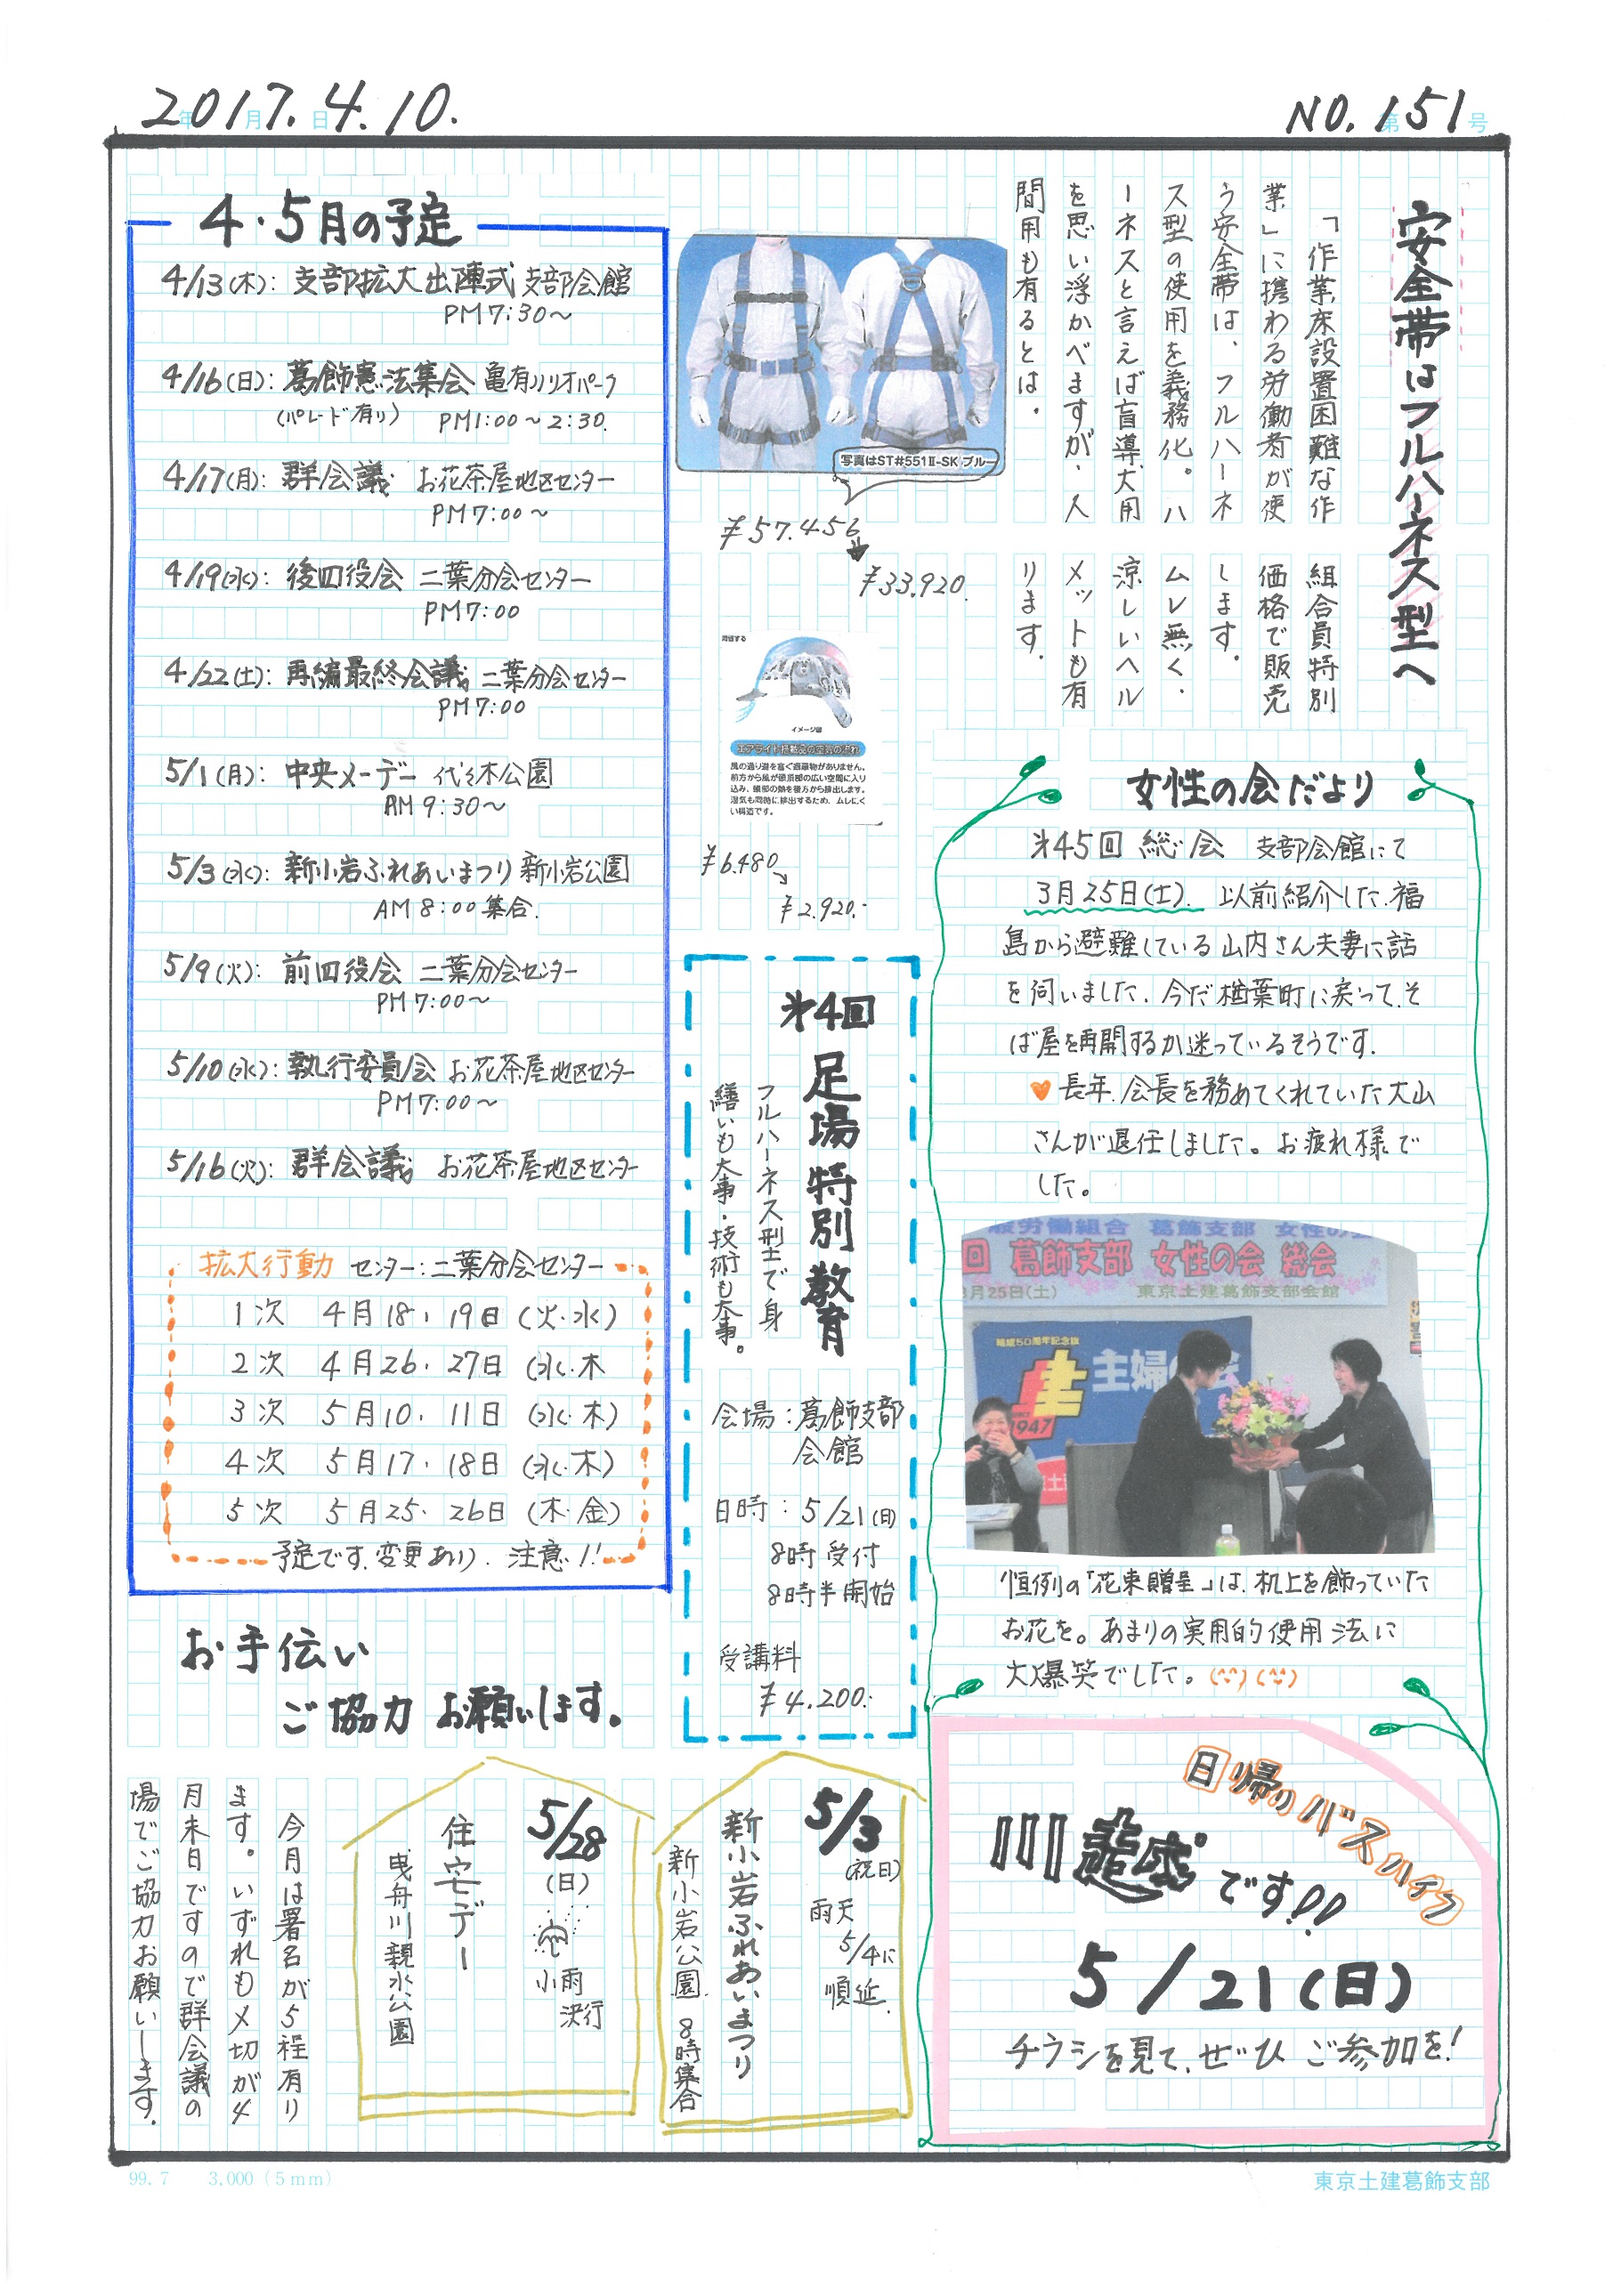 2017.4.10.
年 月 日
NO.151
第 号
安全帯はフルハーネス型へ
「作業床設置困難な作
業」に携わる労働者が使
う安全帯は、フルハーネ
ス型の使用を義務化。ハ
ーネスと言えば盲導犬用
を思い浮かべますが、人
間用も有るとは.
組合員特別
価格で販売
します.
ムレ無く、
涼しいヘル
メットも有
ります.
写真はST#551Ⅱ-SK ブルー
¥57.456
¥33.920.
イメージ図
エアライト搭載品の空気の流れ
風の通り道を塞ぐ遮蔽物がありません。
前方から風が頭頂部の広い空間に入り
込み、頭部の熱を後方から排出します。
湿気も同時に排出するため、ムレにく
い構造です。
¥6.480
¥2.920.-
4・5月の予定
4/13(木): 支部拡大出陣式 支部会館
PM7:30～
4/16(日): 葛飾憲法集会 亀有リリオパーク
(パレード有り) PM1:00～2:30.
4/17(月): 群会議 お花茶屋地区センター
PM7:00～
4/19(水): 後四役会 二葉分会センター
PM7:00
4/22(土): 再編最終会議 二葉分会センター
PM7:00
5/1(月): 中央メーデー 代々木公園
AM9:30～
5/3(水): 新小岩ふれあいまつり 新小岩公園
AM8:00集合.
5/9(火): 前四役会 二葉分会センター
PM7:00～
5/10(水): 執行委員会 お花茶屋地区センター
PM7:00～
5/16(火): 群会議 お花茶屋地区センター
拡大行動 センター:二葉分会センター
1次 4月18、19日(火・水)
2次 4月26、27日(水・木
3次 5月10、11日(水・木)
4次 5月17、18日(水・木)
5次 5月25、26日(木・金)
予定です.変更あり.注意!!
女性の会だより
㐧45回 総会 支部会館にて
3月25日(土). 以前紹介した.福
島から避難している山内さん夫妻に話
を伺いました.今だ楢葉町に戻って.そ
ば屋を再開するか迷っているそうです.
♥長年.会長を務めてくれていた大山
さんが退任しました。お疲れ様で
した。
設労働組合 葛飾支部 女性の会
回 葛飾支部 女性の会 総会
3月25日(土) 東京土建葛飾支部会館
結成50周年記念旗
主婦の会
1947
恒例の「花束贈呈」は.机上を飾っていた
お花を。あまりの実用的使用法に
大爆笑でした。(^^)(^^)
㐧4回
足場特別教育
フルハーネス型で身
繕いも大事・技術も大事。
会場:葛飾支部
会館
日時:5/21(日)
8時受付
8時半開始
受講料
¥4.200.-
日帰りバスハイク
川越です!!
5/21(日)
チラシを見て、ぜひご参加を!
お手伝い
ご協力お願いします。
5/3
(祝日)
雨天
5/4に
順延.
新小岩ふれあいまつり
新小岩公園 8時集合
5/28
(日)
小雨
決行
住宅デー
曳舟川親水公園
今月は署名が5程有り
ます.いずれも〆切が4
月末日ですので群会議の
場でご協力お願いします.
99.7 3,000(5mm)
東京土建葛飾支部